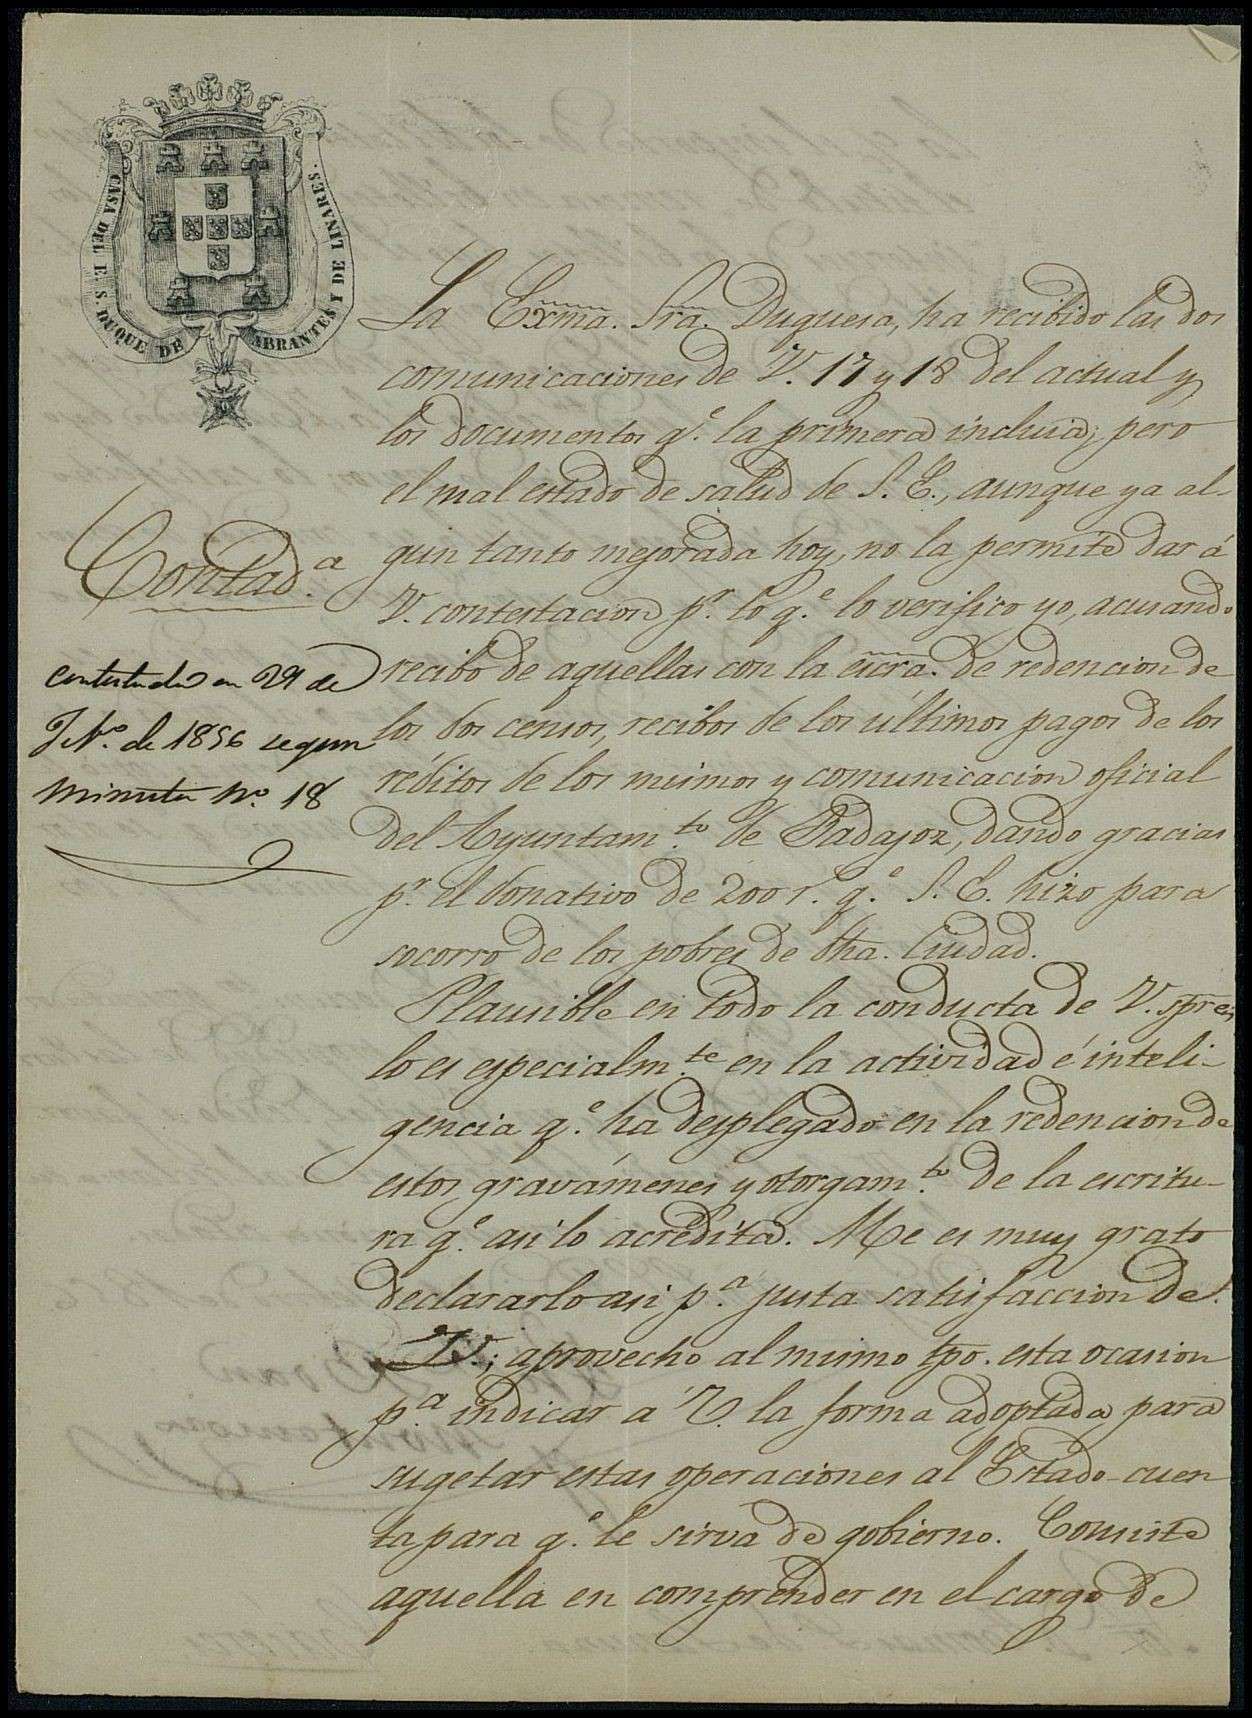 CASA DEL E. S. DUQUE DE ABRANTES Y DE LINARES.
La Exma. Sra. Duquesa, ha recibido las dos
comunicaciones de V. 17 y 18 del actual y
los documentos q.e la primera incluia; pero
el mal estado de salud de S. E., aunque ya al-
gun tanto mejorada hoy, no la permite dar á
V. contestacion p.r lo q.e lo verifico yo, acusando
recibo de aquellas con la escra. de redencion de
los dos censos, recibos de los últimos pagos de los
réditos de los mismos y comunicacion oficial
del Ayuntam.to de Badajoz, dando gracias
p.r el donativo de 200 r. q.e S. E. hizo para
socorro de los pobres de dha. Ciudad.
Plausible en todo la conducta de V. spre,
lo es especialm.te en la actividad é inteli-
gencia q.e ha desplegado en la redencion de
estos gravámenes y otorgam.to de la escritu-
ra q.e asi lo acredita. Me es muy grato
declararlo asi p.a justa satisfaccion de
V.; aprovecho al mismo tpo. esta ocasion
p.a indicar á V. la forma adoptada para
sugetar estas operaciones al Estado-cuen
ta para q.e le sirva de gobierno. Consiste
aquella en comprender en el cargo de
Contad.a
contestada en 29 de
de 1856 segun
minuta N.o 18